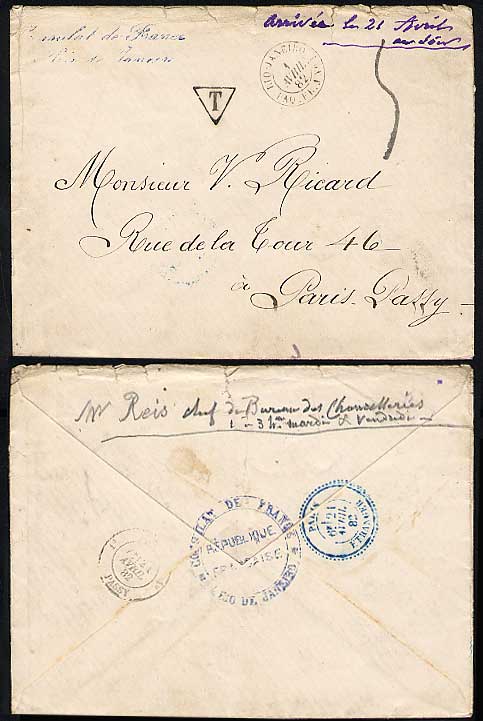 Consulat de France
Rio de Janeiro
Arrivée le 21 Avril
au soir
RIO-JANEIRO
1
AVRIL
82
PAQ. FR. J
T
5
Monsieur V. Ricard
Rue de la Tour 46
à Paris-Passy.
Mr Reis chef de Bureau des Chancelleries
1 - 3 hes mardis & Vendredis
CONSULAT DE FRANCE
REPUBLIQUE
FRANCAISE
RIO DE JANEIRO
PARIS
21
AVRIL
82
ETRANGER
AVRIL
82
PASSY